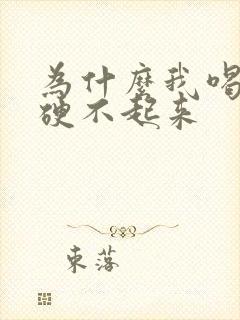 為什麼我喝
硬不起来
東落